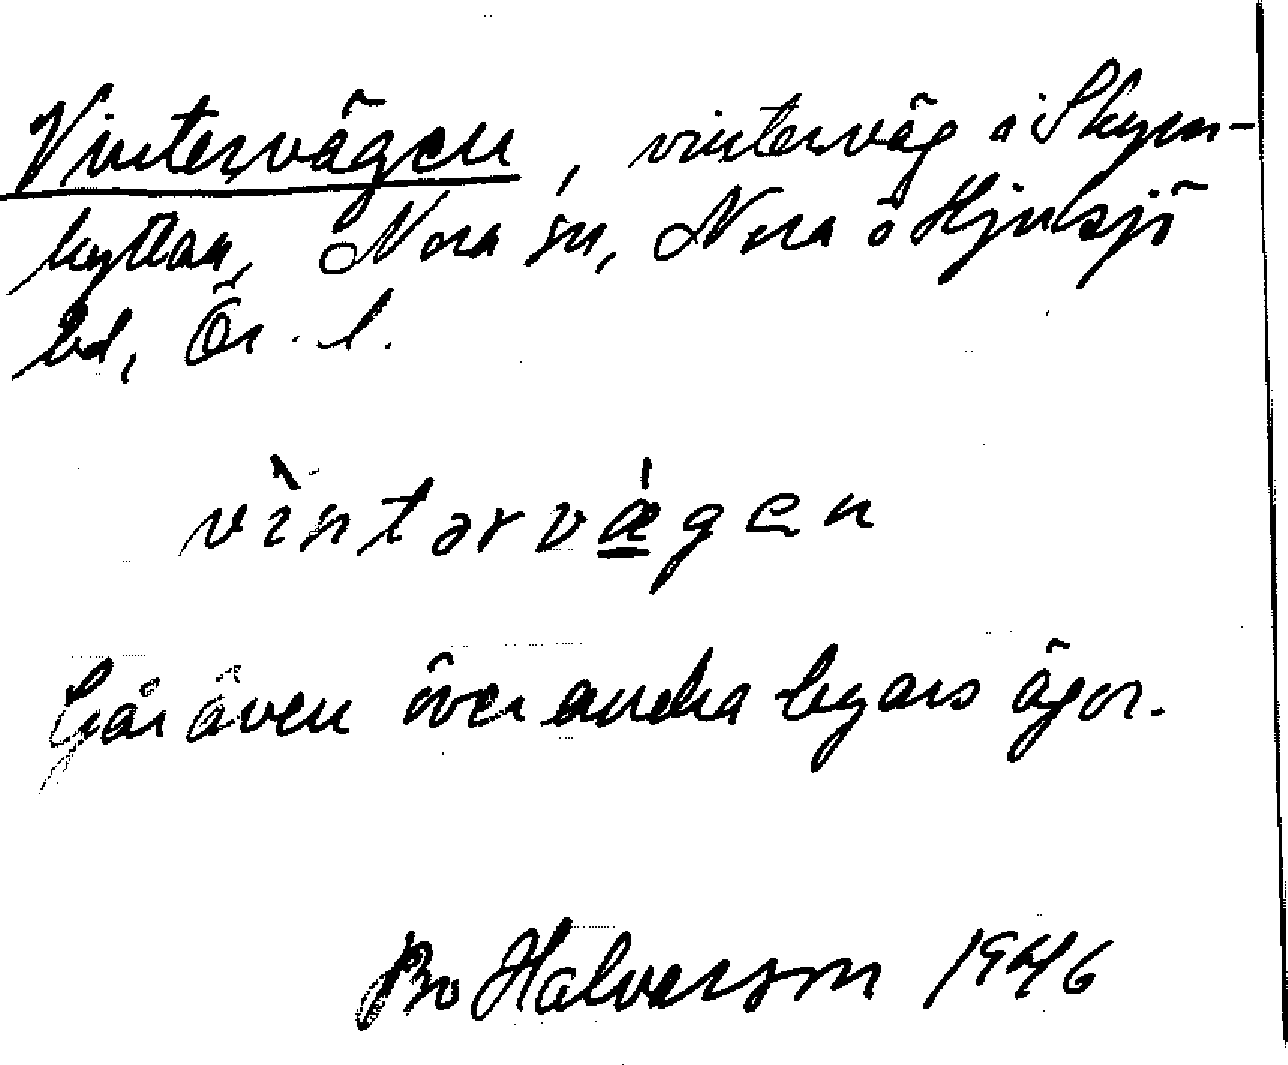 Vintervägen, vinterväg i Skrym-
hyttan, Nora sn, Nora o Hjulsjö
bd, Ör. l.
vìntərvǽgen
Går även över andra byars ägor.
Bo Halvarson 1946